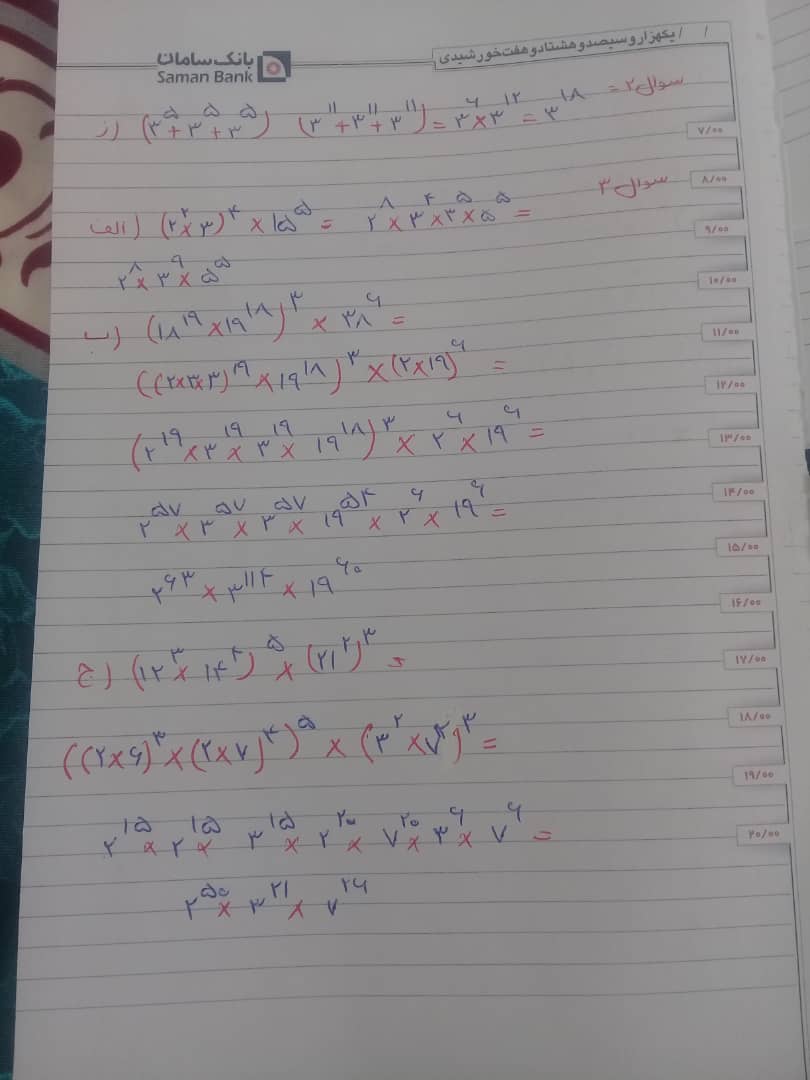 / / یکهزار و سیصد و هشتاد و هفت خورشیدی
بانک سامان
Saman Bank
سوال ۲ =
ز) (۳^۵ + ۳^۵ + ۳^۵) (۳^۱۱ + ۳^۱۱ + ۳^۱۱) = ۳^۶ × ۳^۱۲ = ۳^۱۸
۷/۰۰
سوال ۳
۸/۰۰
الف) (۲^۲ × ۳)^۴ × ۱۵^۵ = ۲^۸ × ۳^۴ × ۳^۵ × ۵^۵ =
۹/۰۰
۲^۸ × ۳^۹ × ۵^۵
۱۰/۰۰
ب) (۱۸^۱۹ × ۱۹^۱۸)^۳ × ۳۸^۶ =
۱۱/۰۰
((۲×۳×۳)^۱۹ × ۱۹^۱۸)^۳ × (۲×۱۹)^۶ =
۱۲/۰۰
(۲^۱۹ × ۳^۱۹ × ۳^۱۹ × ۱۹^۱۸)^۳ × ۲^۶ × ۱۹^۶ =
۱۳/۰۰
۲^۵۷ × ۳^۵۷ × ۳^۵۷ × ۱۹^۵۴ × ۲^۶ × ۱۹^۶ =
۱۴/۰۰
۲^۶۳ × ۳^۱۱۴ × ۱۹^۶۰
۱۵/۰۰
۱۶/۰۰
ج) (۱۲^۳ × ۱۴^۴)^۵ × (۲۱^۲)^۳ =
۱۷/۰۰
((۲×۶)^۳ × (۲×۷)^۴)^۵ × (۳^۲ × ۷^۲)^۳ =
۱۸/۰۰
۱۹/۰۰
۲^۱۵ × ۲^۱۵ × ۳^۱۵ × ۲^۲۰ × ۷^۲۰ × ۳^۶ × ۷^۶ =
۲۰/۰۰
۲^۵۰ × ۳^۲۱ × ۷^۲۶